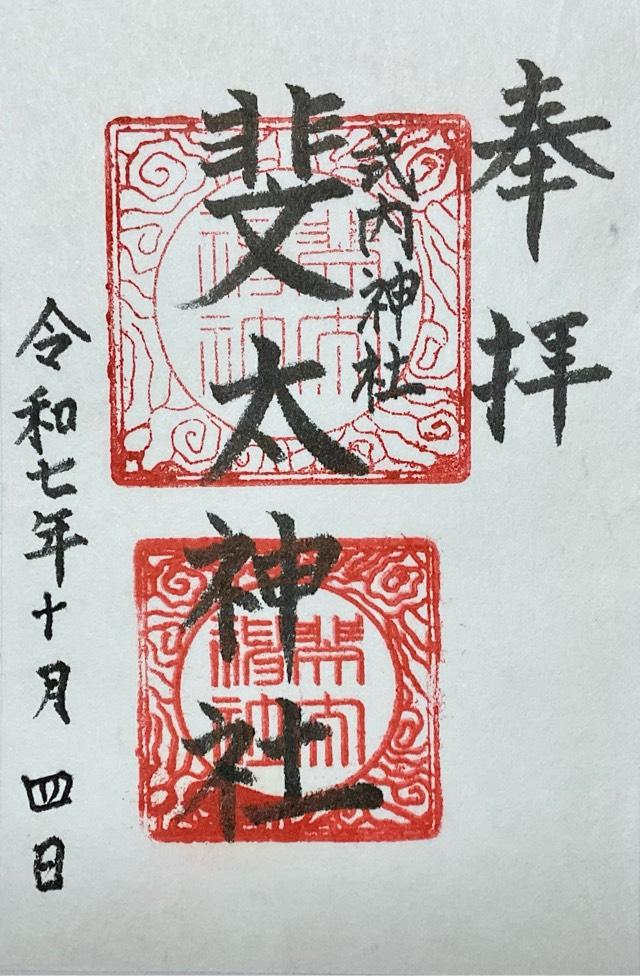 奉拝
式内神社
斐太神社
令和七年十月四日